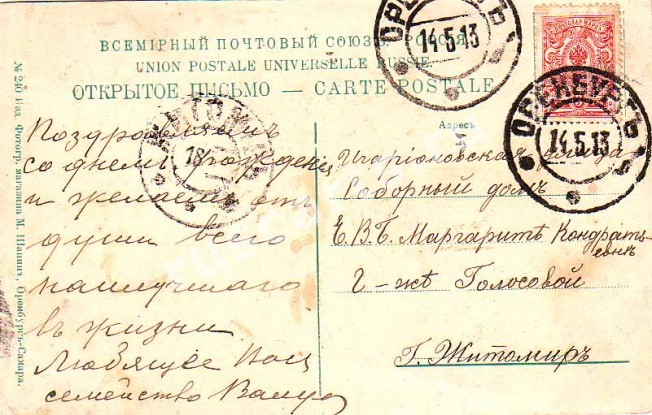 ВСЕМІРНЫЙ ПОЧТОВЫЙ СОЮЗЪ. РОССІЯ
UNION POSTALE UNIVERSELLE RUSSIE
ОТКРЫТОЕ ПИСЬМО — CARTE POSTALE
Адресъ
№ 240 Изд. Фотогр. магазина М. Шапинъ, Оренбургъ-Самара.
ОРЕНБУРГЪ
14.5.13
ОРЕНБУРГЪ
14.5.13
ЖИТОМІРЪ
18
Поздравляемъ
со днемъ рожденія
и желаемъ отъ
души всего
наилучшаго
въ жизни
Любящее Васъ
семейство
Соборный домъ
Е.В.Б. Маргаритѣ Кондрать-
евнѣ
Г-жѣ Голосовой
Г. Житомиръ